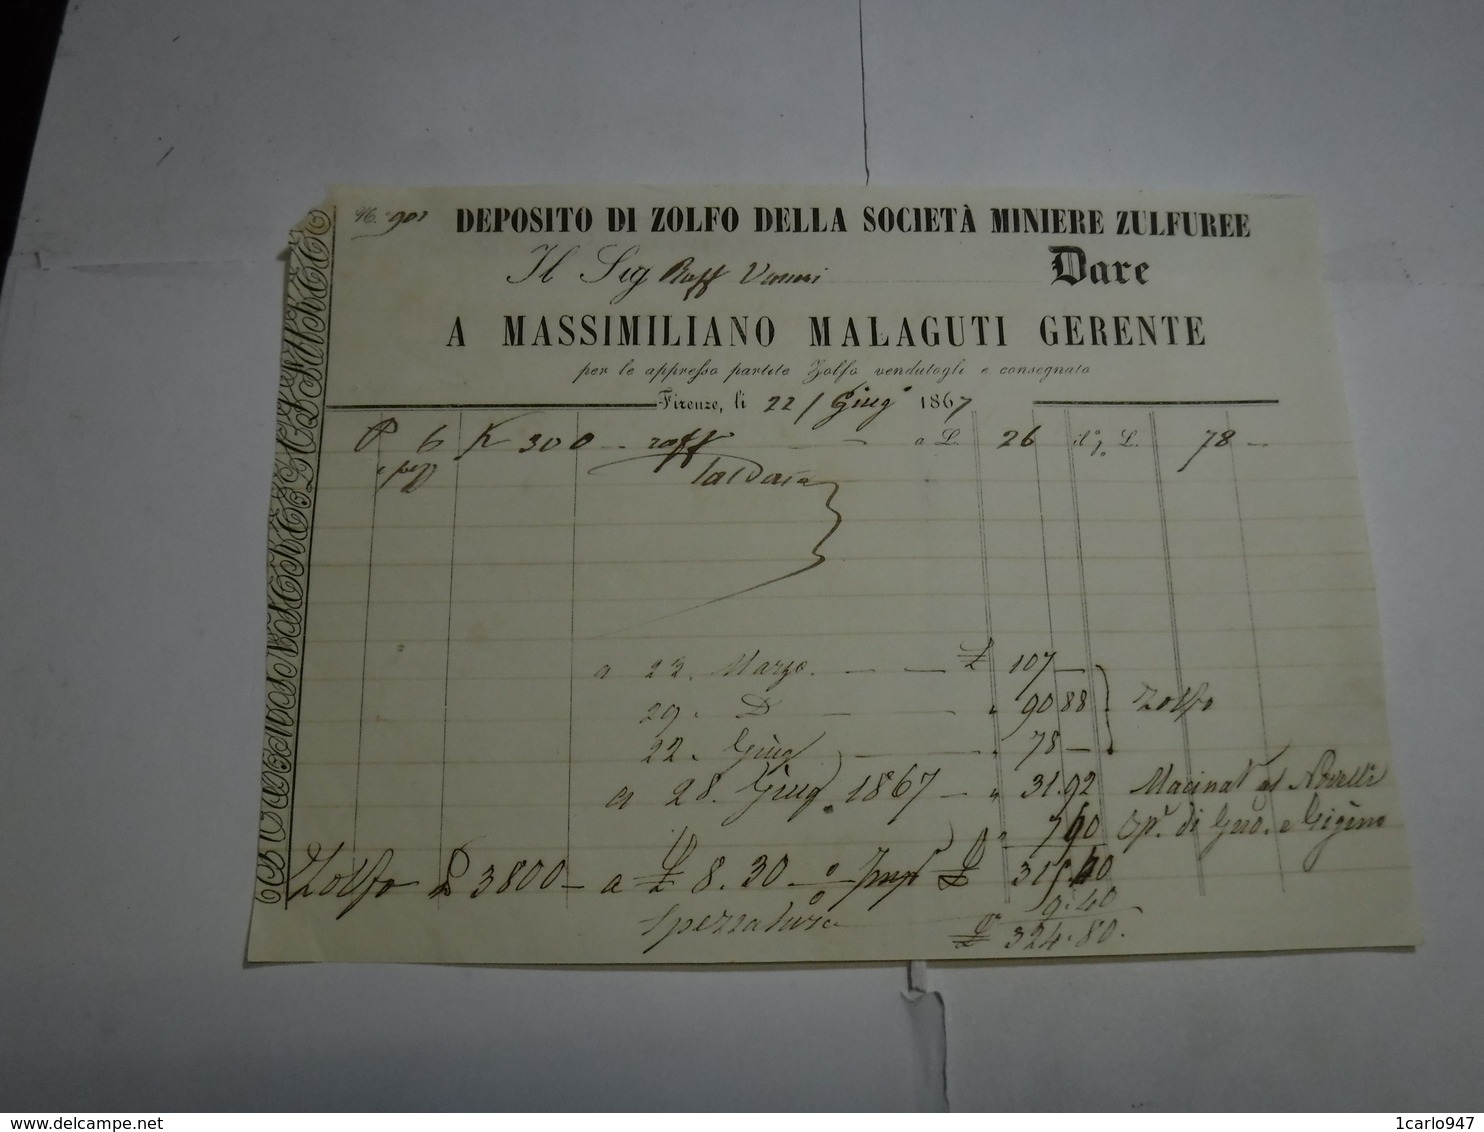 903 DEPOSITO DI ZOLFO DELLA SOCIETÀ MINIERE ZULFUREE
Il Sig Raff Vanni Dare
A MASSIMILIANO MALAGUTI GERENTE
per le appresso partite Zolfo vendutogli e consegnato
Firenze, li 22 / Giug° 1867
P 6 K 300 — raff — a L. 26 il % L. 78 —
a 22. Marzo. — — £ 107 —
29. D — " 90 88 Zolfo
22. Giug — " 78 —
a 28. Giug 1867 — " 31.92 Macinat al Novelli
" 7 60 Op. di e Gigino
Zolfo 3800 — a £ 8.30 — £ 315 40
Spezzatura 9.40
£ 324.80.
delcampe.net
1carlo947